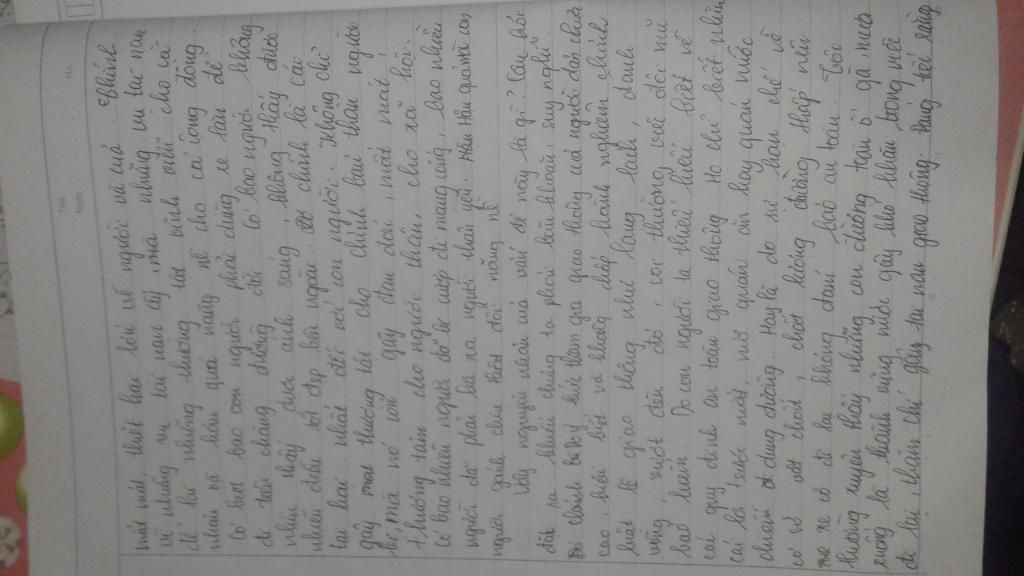 Thứ
Ngày
No.
mát mát, thiệt hại lớn về người và của. Chính
vì những vụ tai nạn ấy, mà những vụ tai nạn
để lại những thương tật vĩnh viễn cho cá
nhân và hậu quả nặng nề cho cả cộng đồng.
Có biết bao con người phải dùng xe lăn để
đi trên chặng đường đời. Có bao người không
nhìn thấy được ánh sáng, không thấy được
nhiều điều tốt đẹp bên ngoài. Đó chính là các
tác hại nhất đối với con người. Không chỉ
gây thương tật cho chính bản thân người
bị, mà nó còn gây đau đớn, mất mát,
thương tâm cho người thân, cho xã hội.
Có bao nhiêu người đã bị cướp đi mạng sống, bao nhiêu
người đã phải lìa xa người thân yêu. Hậu quả mà con
người gánh chịu thật đối nặng nề
Vậy nguyên nhân của vấn đề này là gì? Câu hỏi
đặt ra khiến chúng ta phải băn khoăn, suy nghĩ.
Đó chính bởi ý thức tham gia giao thông của người dân chưa
cao, hiểu biết và không chấp hành nghiêm chỉnh
luật lệ giao thông như lạng lách, đánh
võng, vượt đèn đỏ, coi thường việc đội mũ
bảo hiểm. Do con người ta thiếu hiểu biết về
các quy định an toàn giao thông. Họ chỉ biết nhìn
cái lợi trước mắt, mở quán ăn hay quán nước
chiếm dụng đường. Hay là do sự hạn chế về
cơ sở vật chất, chất lượng đường thấp nên
xe cộ đi lại không đảm bảo an toàn. Tôi
thường xuyên thấy những con đường toàn ổ gà mưa
xuống là thành vũng nước gây khó khăn trong việc
đi lại, thậm chí gây tai nạn giao thông.